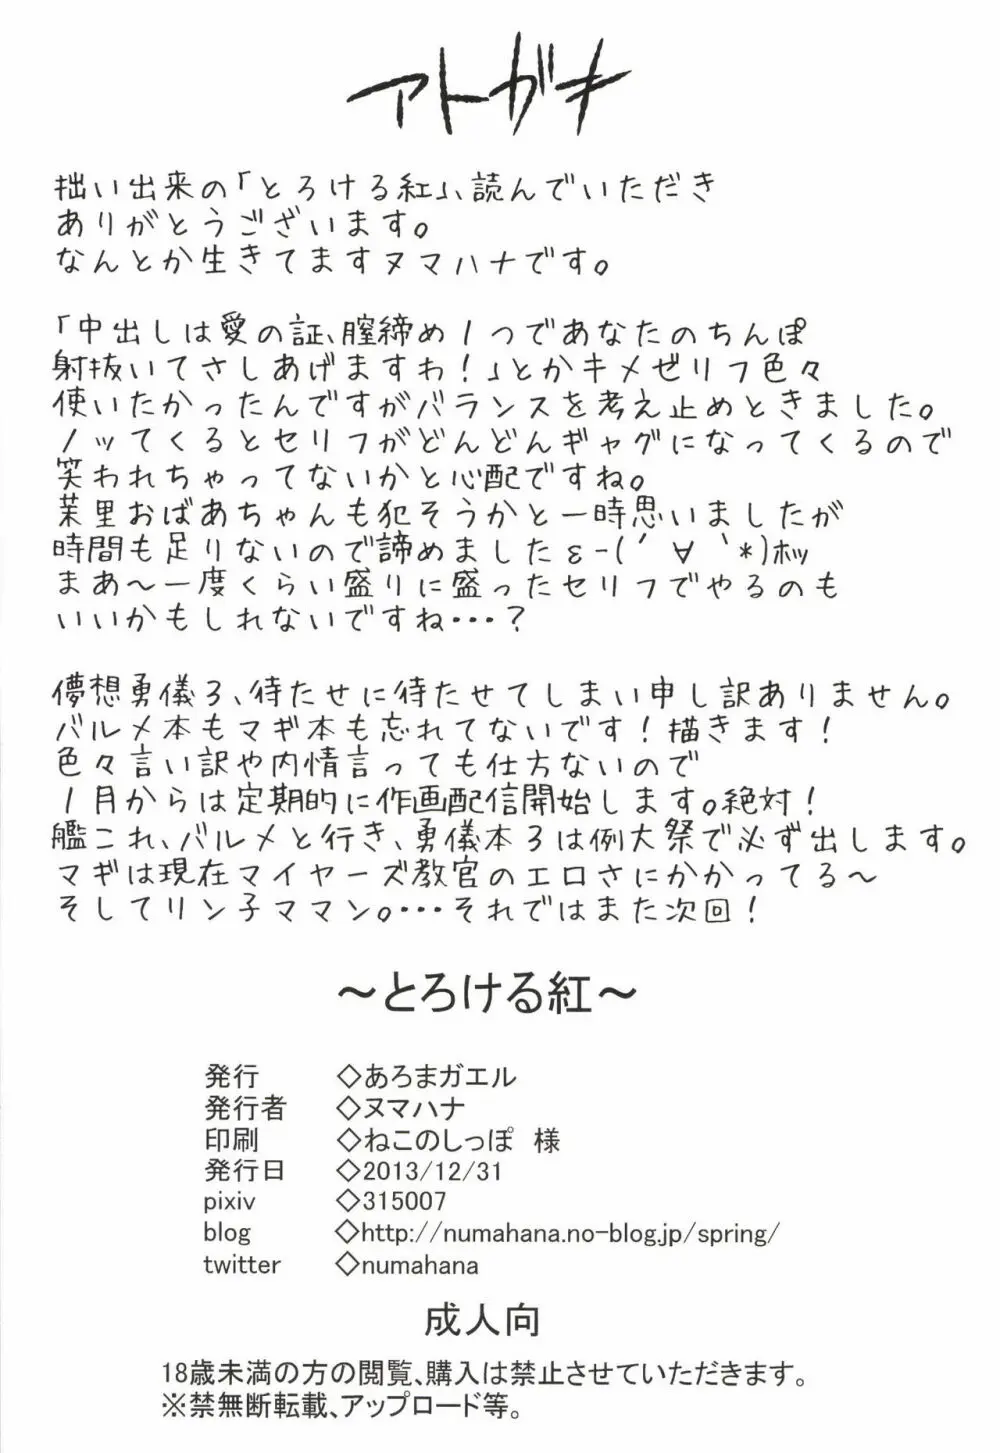 アトガキ
拙い出来の「とろける紅」、読んでいただき
ありがとうございます。
なんとか生きてますヌマハナです。
「中出しは愛の証、膣締め1つであなたのちんぽ
射抜いてさしあげますわ!」とかキメゼリフ色々
使いたかったんですがバランスを考え止めときました。
ノッてくるとセリフがどんどんギャグになってくるので
笑われちゃってないかと心配ですね。
茉里おばあちゃんも犯そうかと一時思いましたが
時間も足りないので諦めましたε-(´∀｀*)ホッ
まあ～一度くらい盛りに盛ったセリフでやるのも
いいかもしれないですね・・・?
儚想勇儀3、待たせに待たせてしまい申し訳ありません。
バルメ本もマギ本も忘れてないです!描きます!
色々言い訳や内情言っても仕方ないので
1月からは定期的に作画配信開始します。絶対!
艦これ、バルメと行き、勇儀本3は例大祭で必ず出します。
マギは現在マイヤーズ教官のエロさにかかってる～
そしてリン子ママン。・・・それではまた次回!
～とろける紅～
発行 ◇あろまガエル
発行者 ◇ヌマハナ
印刷 ◇ねこのしっぽ 様
発行日 ◇2013/12/31
pixiv ◇315007
blog ◇http://numahana.no-blog.jp/spring/
twitter ◇numahana
成人向
18歳未満の方の閲覧、購入は禁止させていただきます。
※禁無断転載、アップロード等。